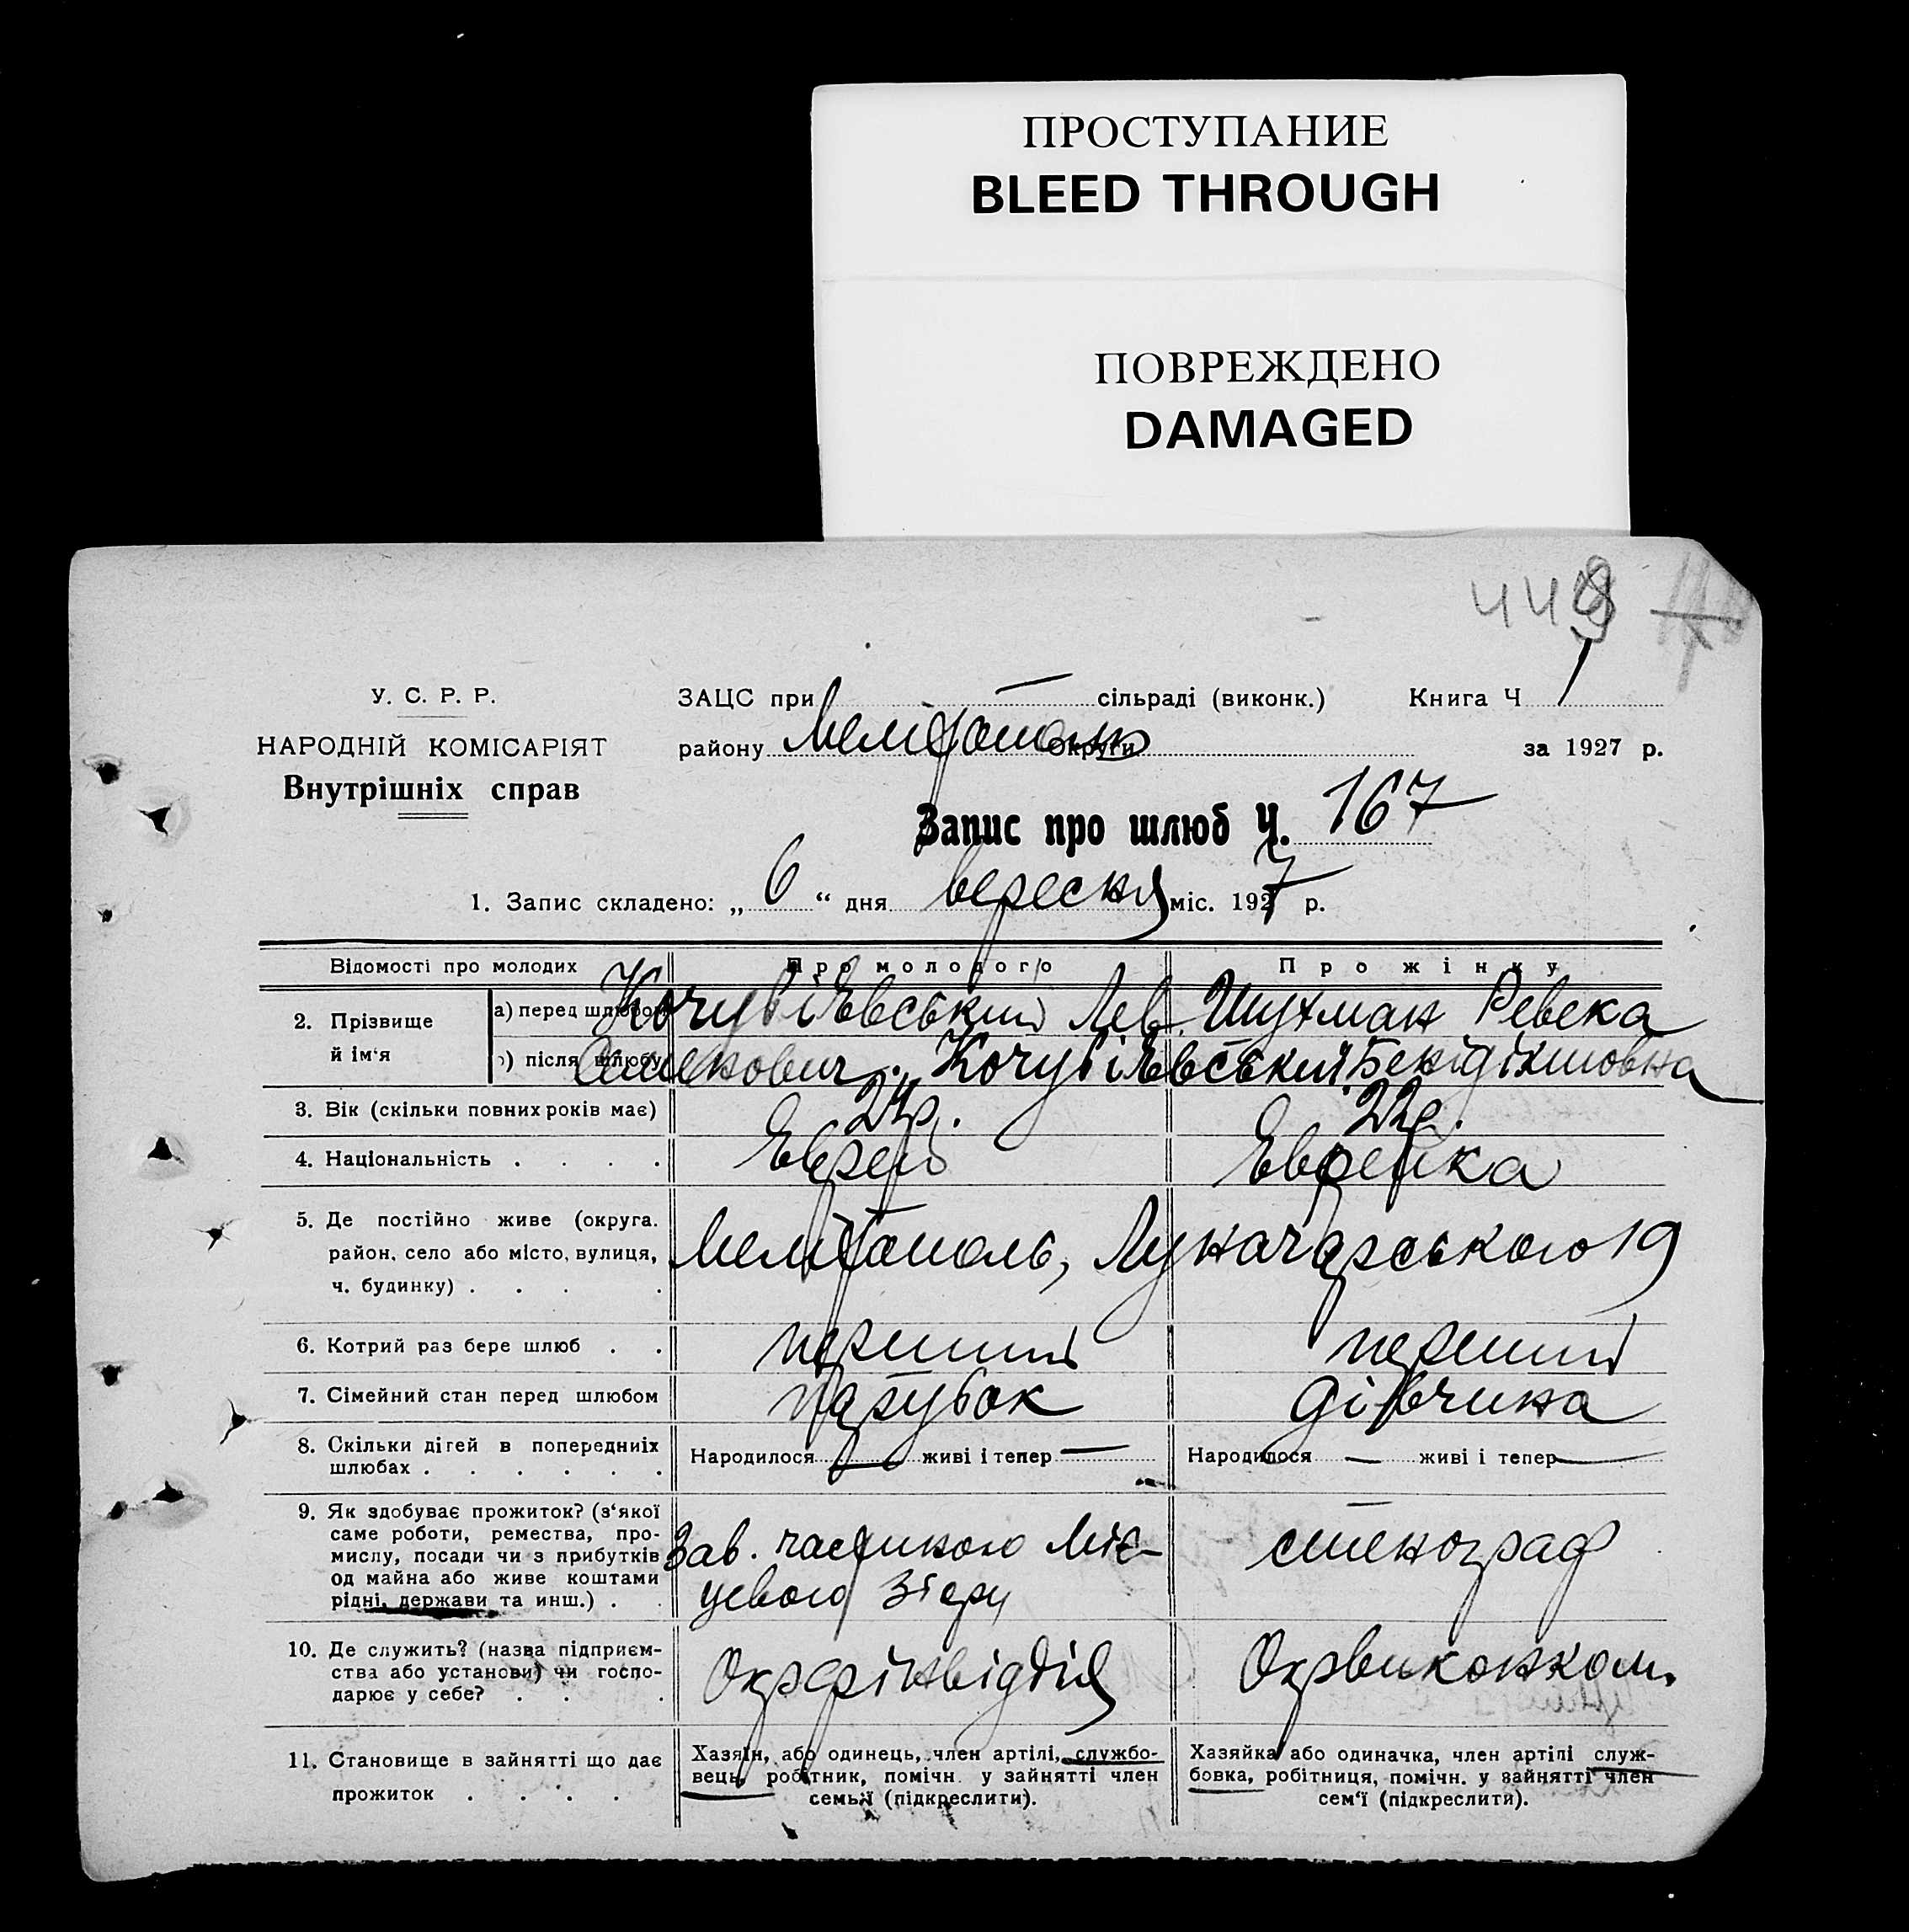 ПРОСТУПАНИЕ
BLEED THROUGH
ПОВРЕЖДЕНО
DAMAGED
449
У. С. Р. Р.
НАРОДНІЙ КОМІСАРІЯТ
Внутрішніх справ
ЗАЦС при — сільраді (виконк.) Книга Ч 1
району Мелітопольс округи за 1927 р.
Запис про шлюб Ч. 167
1. Запис складено: „ 6 “ дня вересня міс. 1927 р.
Відомості про молодих Про молодого Про жінку
2. Прізвище й ім‘я
а) перед шлюбом Кочубіївський Лев Шухман Ревека
б) після шлюбу Кочубіївський
3. Вік (скільки повних років має) 24р. 22р.
4. Національність . . . . Еврей Еврейка
5. Де постійно живе (округа.
район, село або місто, вулиця,
ч. будинку) . . . .
Мелітополь, Луначарського 19
6. Котрий раз бере шлюб . . перший перший
7. Сімейний стан перед шлюбом парубок дівчина
8. Скільки дігей в попередниіх
шлюбах . . . . . .
Народилося — живі і тепер — Народилося — живі і тепер —
9. Як здобуває прожиток? (з‘якої
саме роботи, ремества, про-
мислу, посади чи з прибутків
од майна або живе коштами
рідні, держави та инш.) . .
Зав. частиною Міс-
цевого
стенограф
10. Де служить? (назва підприєм-
ства або установи) чи госпо-
дарює у себе? . . .
Окрфінвідділ Окрвиконком.
11. Становище в зайнятті що дає
прожиток . . . .
Хазяїн, або одинець, член артілі, службо-
вець, робітник, помічн. у зайнятті член
семьї (підкреслити).
Хазяйка або одиначка, член артілі служ-
бовка, робітниця, помічн. у зайнятті член
сем‘ї (підкреслити).